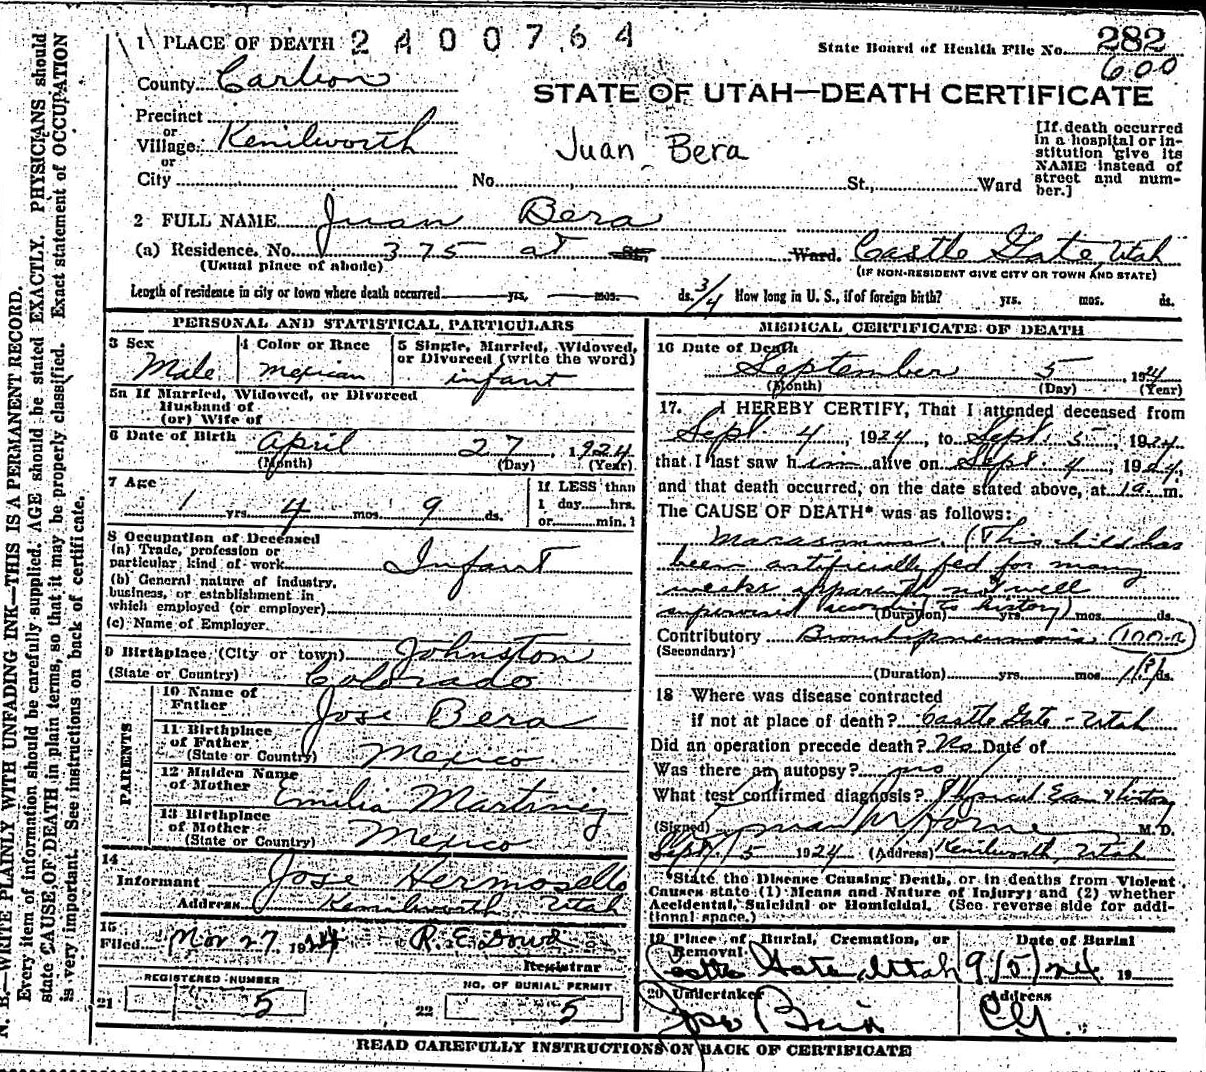 1 PLACE OF DEATH 2400764
State Board of Health File No. 282
600
County Carbon
STATE OF UTAH—DEATH CERTIFICATE
Precinct
or
Village Kenilworth
or
City No. St., Ward
Juan Bera
[If death occurred
in a hospital or in-
stitution give its
NAME instead of
street and num-
ber.]
2 FULL NAME Juan Bera
(a) Residence. No. 375 at St. Ward. Castle Gate, Utah
(Usual place of abode) (IF NON-RESIDENT GIVE CITY OR TOWN AND STATE)
Length of residence in city or town where death occurred yrs. mos. 3/4 ds. How long in U. S., if of foreign birth? yrs. mos. ds.
PERSONAL AND STATISTICAL PARTICULARS
3 Sex
Male
4 Color or Race
mexican
5 Single, Married, Widowed,
or Divorced (write the word)
infant
5a If Married, Widowed, or Divorced
Husband of
(or) Wife of
6 Date of Birth April 27, 1924
(Month) (Day) (Year)
7 Age
1 yrs. 4 mos. 9 ds.
If LESS than
1 day hrs.
or min.?
8 Occupation of Deceased
(a) Trade, profession or
particular kind of work Infant
(b) General nature of industry,
business, or establishment in
which employed (or employer)
(c) Name of Employer
9 Birthplace (City or town) Johnston
(State or Country) Colorado
PARENTS
10 Name of
Father Jose Bera
11 Birthplace
of Father
(State or Country) Mexico
12 Maiden Name
of Mother Emilia Martinez
13 Birthplace
of Mother
(State or Country) Mexico
14
Informant Jose Hermosello
Address Kenilworth Utah
15
Filed Nov 27, 1924 R. E. Dowd
Registrar
REGISTERED NUMBER
21 5
NO. OF BURIAL PERMIT
22 5
MEDICAL CERTIFICATE OF DEATH
16 Date of Death
September 5 1924
(Month) (Day) (Year)
17. I HEREBY CERTIFY, That I attended deceased from
Sept 4, 1924, to Sept. 5, 1924,
that I last saw him alive on Sept. 4, 1924,
and that death occurred, on the date stated above, at 1 a m.
The CAUSE OF DEATH* was as follows:
Marasmus. (This child has
been artificially fed for many
weeks apparently not well
supervised according to history)
(Duration) yrs. mos. ds.
Contributory Bronchopneumonia.
(Secondary)
(Duration) yrs. mos. ds.
18 Where was disease contracted
if not at place of death? Castle Gate - Utah
Did an operation precede death? No Date of
Was there an autopsy? no
What test confirmed diagnosis? Physical Exam & history
(Signed) M. D.
Sept. 5 1924 (Address) Kenilworth, Utah
*State the Disease Causing Death, or in deaths from Violent
Causes state (1) Means and Nature of Injury; and (2) whether
Accidental, Suicidal or Homicidal. (See reverse side for addi-
tional space.)
19 Place of Burial, Cremation, or
Removal
Castle Gate, Utah
Date of Burial
9/5/24 19
20 Undertaker
Jose Bera
Address
C.G.
READ CAREFULLY INSTRUCTIONS ON BACK OF CERTIFICATE
N. B.—WRITE PLAINLY WITH UNFADING INK—THIS IS A PERMANENT RECORD.
Every item of information should be carefully supplied. AGE should be stated EXACTLY. PHYSICIANS should
state CAUSE OF DEATH in plain terms, so that it may be properly classified. Exact statement of OCCUPATION
is very important. See instructions on back of certificate.